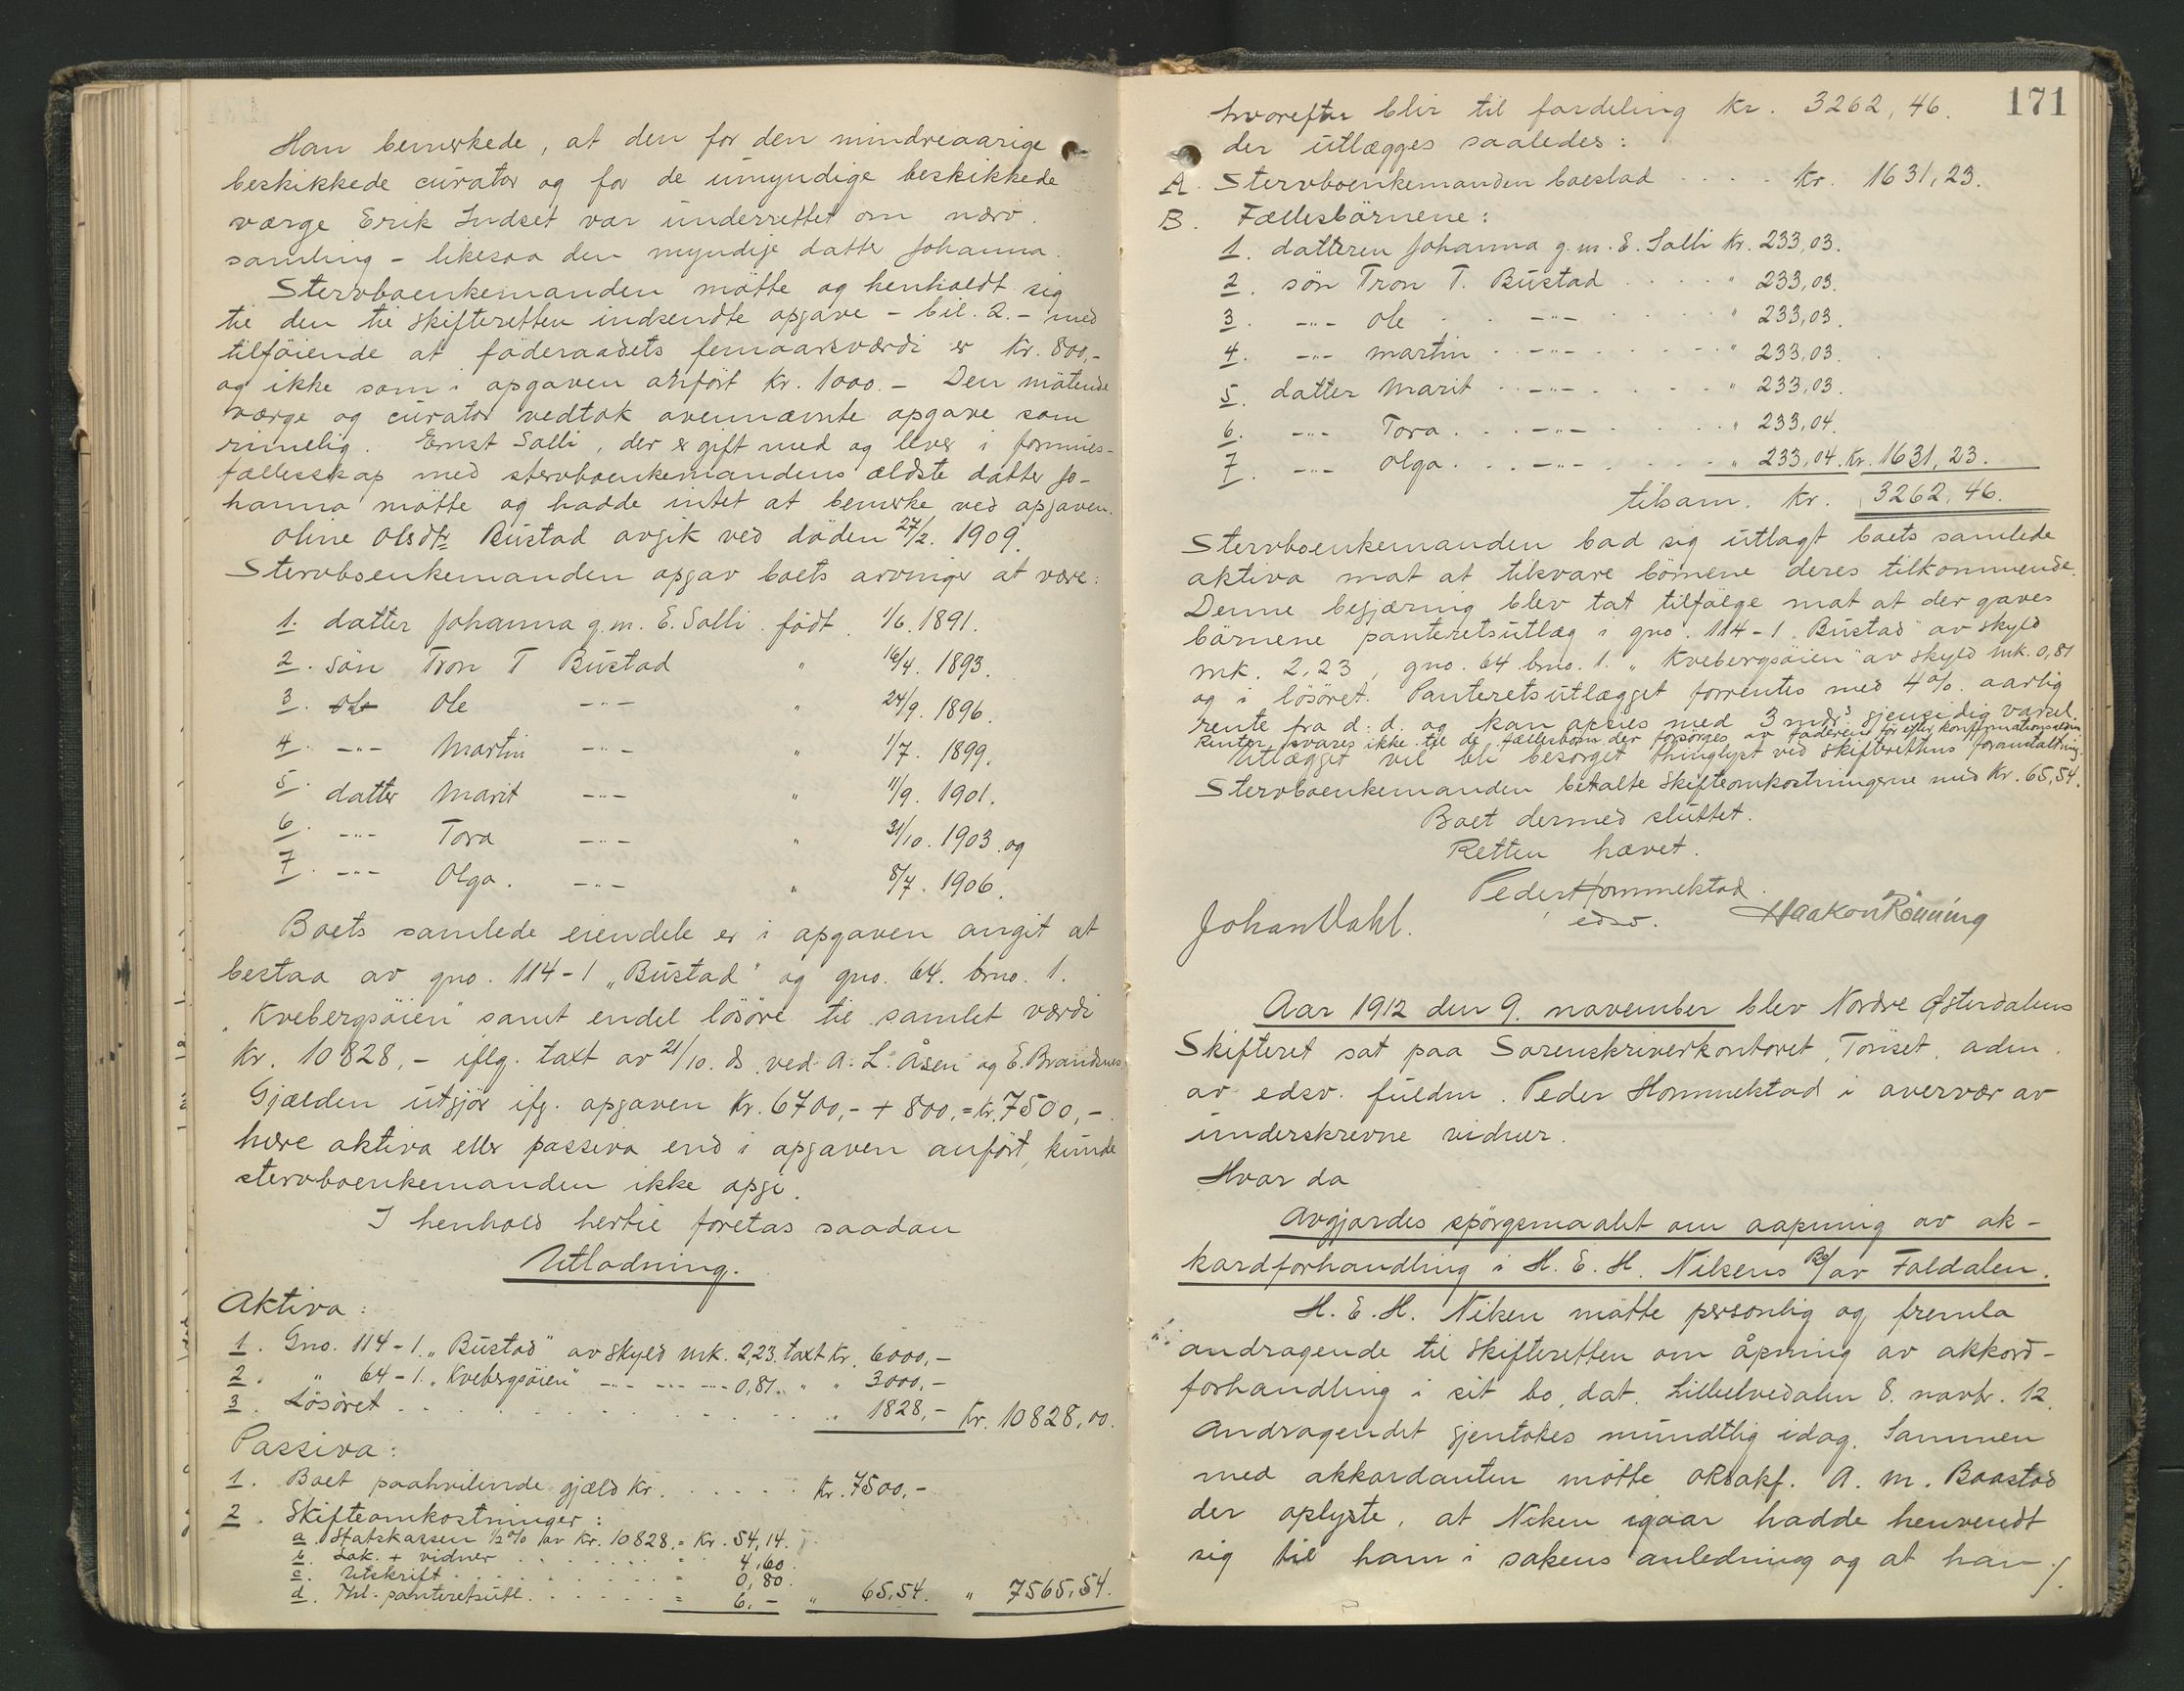 Han bemerkede, at den for den mindreaarige
beskikkede curator og for de umyndige beskikkede
værge Erik Indset var underrettet om nærv.
samling – likesaa den myndige datter Johanna.
Stervboenkemanden mötte og henholdt sig
til den til skifteretten indsendte opgave – bil. 2. – med
tilföiende at föderaadets femaarsværdi er kr. 800,-
og ikke som i opgaven anfört kr. 1000.– Den mötende
værge og curator vedtok ovennævnte opgave som
rimelig. Ernst Salli, der er gift med og lever i formues-
fællesskap med stervboenkemandens ældste datter Jo-
hanna mötte og hadde intet at bemerke ved opgaven.
Oline Olsdtr Bustad avgik ved döden 27/2. 1909.
Stervboenkemanden opgav boets arvinger at være:
1. datter Johanna g.m. E. Salli. födt. 1/6. 1891.
2. sön Tron T Bustad " 16/4. 1893.
3. Ole -"- " 24/9. 1896.
4. -"- Martin -"- " 1/7. 1899.
5. datter Marit -"- " 11/9. 1901.
6. -"- Tora -"- " 31/10. 1903. og
7. -"- Olga. -"- " 8/7. 1906.
Boets samlede eiendele er i opgaven angit at
bestaa av gno. 114-1 „Bustad" og gno. 64. brno. 1.
„Kvebergsöien" samt endel lösöre til samlet værdi
kr. 10828,- iflg. taxt av 21/10. ds. ved A. L. Åsen og E. Brandsnes.
Gjælden utgjör ifg. opgaven kr. 6700,- + 800,- = kr. 7500,-.
Mere aktiva eller passiva end i opgaven anfört, kunde
stervboenkemanden ikke opgi.
I henhold hertil foretas saadan
Utlodning.
Aktiva:
1. Gno. 114-1. „Bustad" av skyld mk. 2,23. taxt Kr. 6000,-
2. " 64-1. „Kvebergsöien" -"- -"- -"- 0,81. " " 3000,-
3. Lösöret . . . . . . . . . " 1828,- Kr. 10828,00.
Passiva:
1. Boet paahvilende gjæld Kr. . . . . . Kr. 7500,-
2. Skifteomkostninger:
a. Statskassen 1/2% av kr. 10828. = Kr. 54,14.
b. Lok. + vidner . . . . . . " 4,60.
c. Utskrift . . . . . . . . " 0,80.
d. Thl. panteretsutl. . . . . . " 6,- " 65,54. " 7565,54.
171
hvorefter blir til fordeling kr. 3262,46.
der utlægges saaledes:
A. Stervboenkemanden boeslod . . . . Kr. 1631,23.
B. Fællesbörnene:
1. datteren Johanna g.m. E. Salli Kr. 233,03.
2. sön Tron T. Bustad . . . . " 233,03.
3. -"- Ole . . -"- . . . . " 233,03.
4. -"- Martin . . -"- . . . . " 233,03.
5. datter Marit . . -"- . . . . " 233,03.
6. -"- Tora . . . -"- . . . . " 233,04.
7. -"- Olga . . . -"- . . . . " 233,04. Kr. 1631,23.
tilsam. Kr. 3262,46.
Stervboenkemanden bad sig utlagt boets samlede
aktiva mot at tilsvare börnene deres tilkommende.
Denne begjæring blev tat tilfölge mot at der gaves
börnene panteretsutlæg i gno. 114-1 „Bustad" av skyld
mk. 2,23, gno. 64 brno. 1. „Kvebergsöien" av skyld mk. 0,81
og i lösöret. Panteretsutlægget forrentes med 4% aarlig
rente fra d. d. og kan opsies med 3 mdrs gjensidig varsel.
Renter svares ikke til de fællesbörn der forsörges av faderen för efter konfirmationsalderen
Utlægget vil bli besörget thinglyst ved skifterettens foranstaltning.
Stervboenkemanden betalte skifteomkostningerne med kr. 65,54.
Boet dermed sluttet.
Retten hævet.
Peder Hommelstad.
edsv.
Johan Dahl.
Haakon Rönning
Aar 1912 den 9. november blev Nordre Østerdalens
Skifteret sat paa Sorenskriverkontoret, Tönset, adm.
av edsv. fuldm. Peder Hommelstad i overvær av
underskrevne vidner.
Hvor da
Avgjordes spörgsmaalet om aapning av ak-
kordforhandling i H. E. H. Nilsens Bo/av Foldalen.
H. E. H. Nilsen mötte personlig og fremla
andragende til skifteretten om åpning av akkord-
forhandling i sit bo, dat. Lillelvedalen 8. novbr. 12.
Andragendet gjentokes mundtlig idag. Sammen
med akkordanten mötte oRsakf. A. M. Baastad
der oplyste, at Nilsen igaar hadde henvendt
sig til ham i sakens anledning og at han ./.